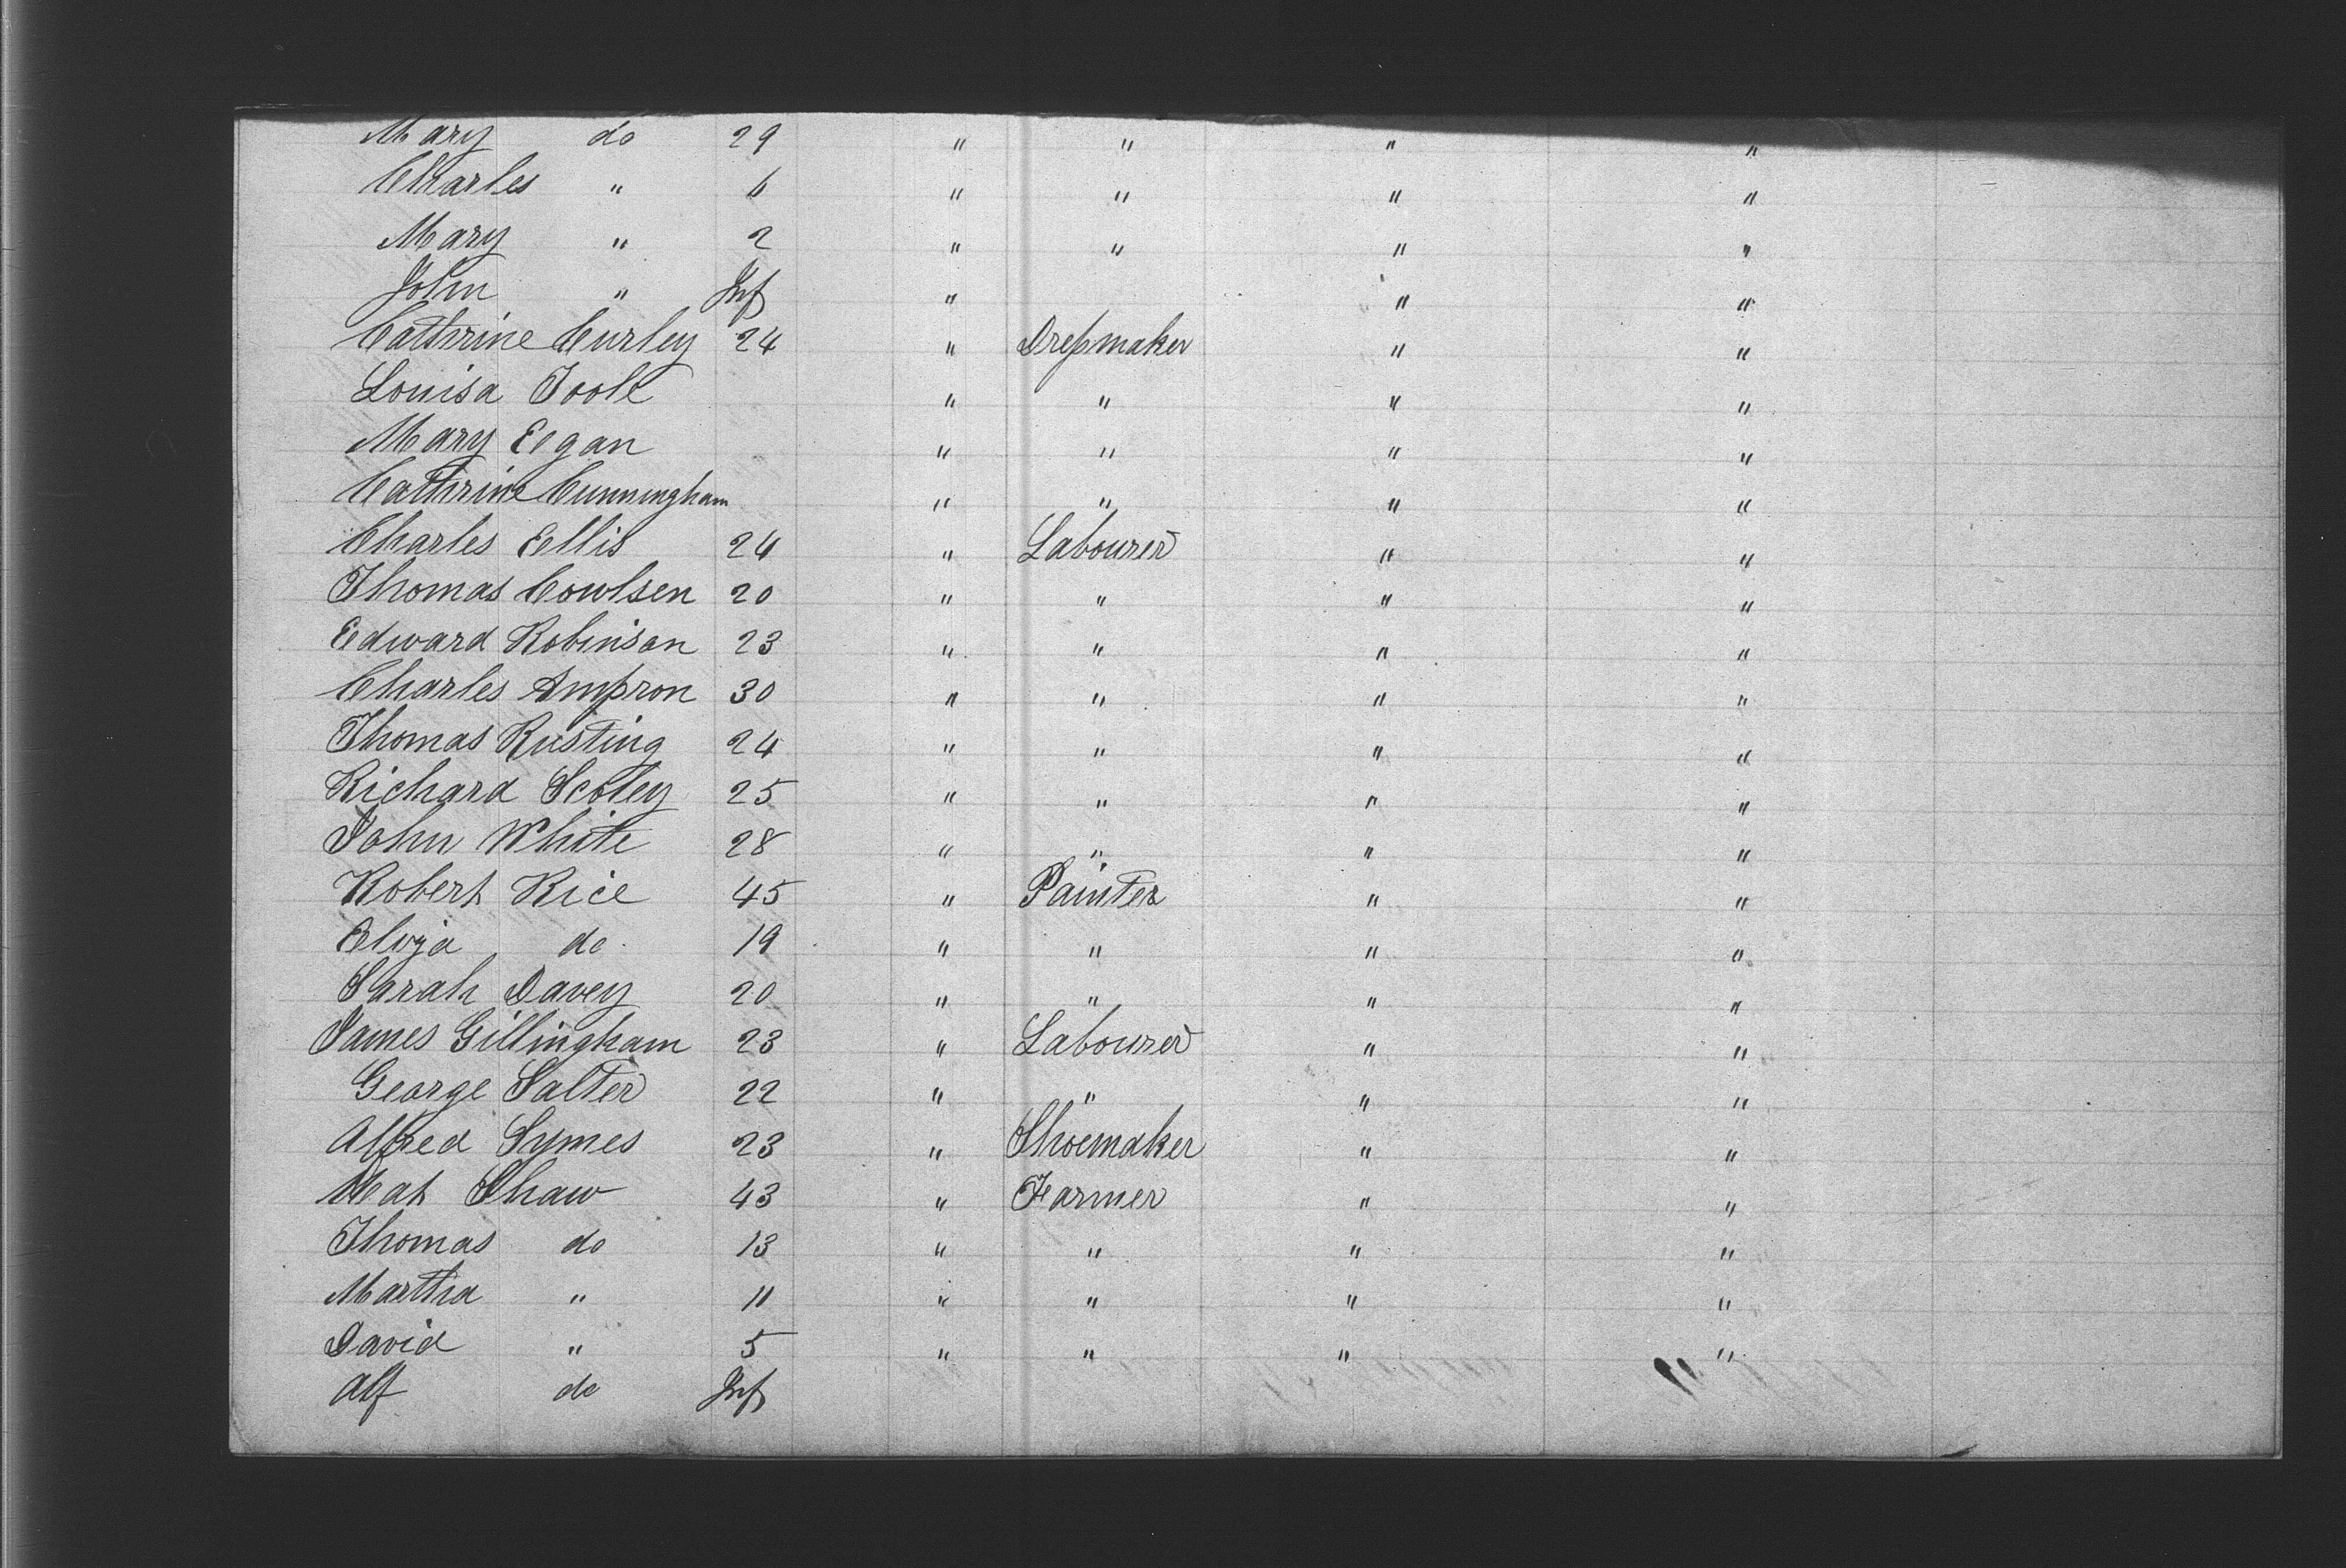 Mary do 29 " " " "
Charles " 6 " " " "
Mary " 2 " " " "
John " Inf " " "
Cathrine Curley 24 " Dressmaker " "
Louisa Toole " " " "
Mary Eegan " " " "
Cathrine Cunningham " " " "
Charles Eellis 24 " Labourer " "
Thomas Cowlsen 20 " " " "
Eedward Robinson 23 " " " "
Charles 30 " " " "
Thomas Rusting 24 " " " "
Richard 25 " " " "
John White 28 " " " "
Robert Rice 45 " Painter " "
do 19 " " " "
Sarah Davey 20 " " " "
James Gillingham 23 " Labourer " "
George Salter 22 " " " "
Alfred Symes 23 " Shoemaker " "
Mat Shaw 43 " Farmer " "
Thomas do 13 " " " "
Martha " 11 " " " "
David " 5 " " " "
Alf do Inf "